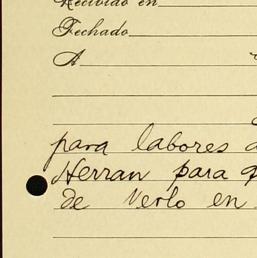 Recibido en
Fechado
A
para labores
Herran para
de Verlo en